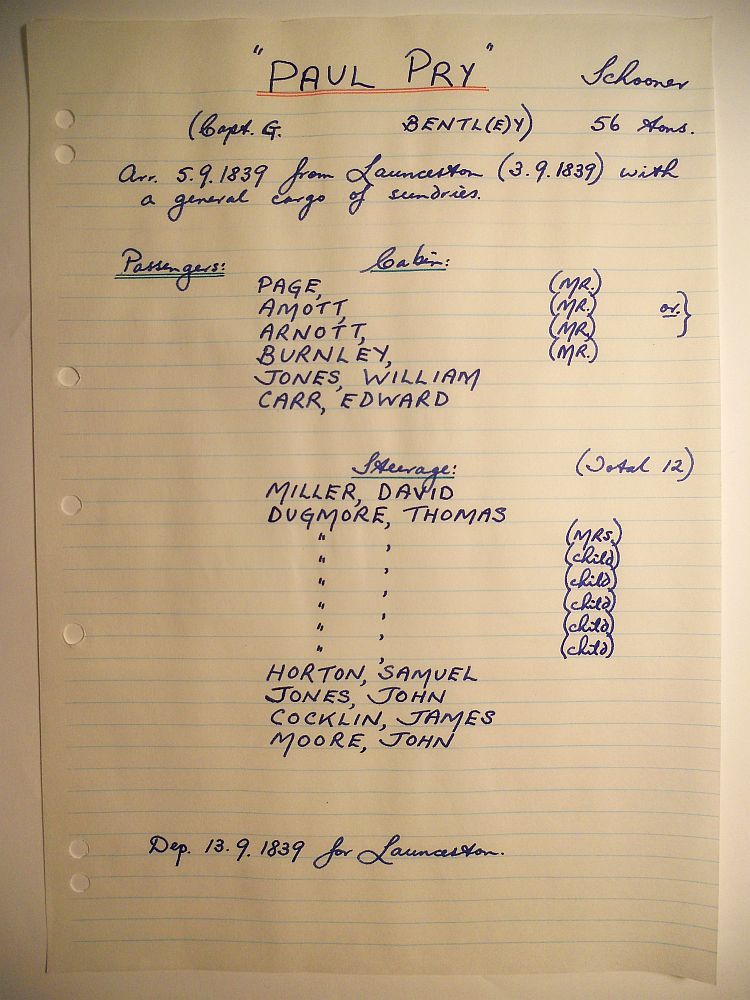 "PAUL PRY" Schooner
(Capt. G. BENTL(E)Y) 56 tons.
Arr. 5.9.1839 from Launceston (3.9.1839) with
a general cargo of sundries.
Passengers: Cabin:
PAGE, (MR.)
AMOTT, (MR.) or. }
ARNOTT, (MR.)
BURNLEY, (MR.)
JONES, WILLIAM
CARR, EDWARD
Steerage: (Total 12)
MILLER, DAVID
DUGMORE, THOMAS
" , (MRS.)
" , (child)
" , (child)
" , (child)
" , (child)
" , (child)
HORTON, SAMUEL
JONES, JOHN
COCKLIN, JAMES
MOORE, JOHN
Dep. 13.9.1839 for Launceston.